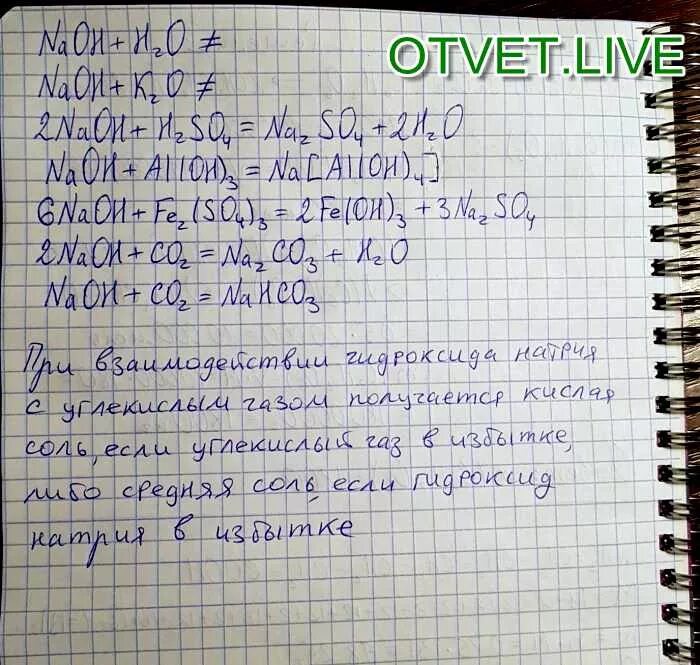 NaOH + H₂O ≠
OTVET.LIVE
NaOH + K₂O ≠
2NaOH + H₂SO₄ = Na₂SO₄ + 2H₂O
NaOH + Al(OH)₃ = Na[Al(OH)₄]
6NaOH + Fe₂(SO₄)₃ = 2Fe(OH)₃ + 3Na₂SO₄
2NaOH + CO₂ = Na₂CO₃ + H₂O
NaOH + CO₂ = NaHCO₃
При взаимодействии гидроксида натрия
с углекислым газом получается кислая
соль, если углекислый газ в избытке,
либо средняя соль, если гидроксид
натрия в избытке